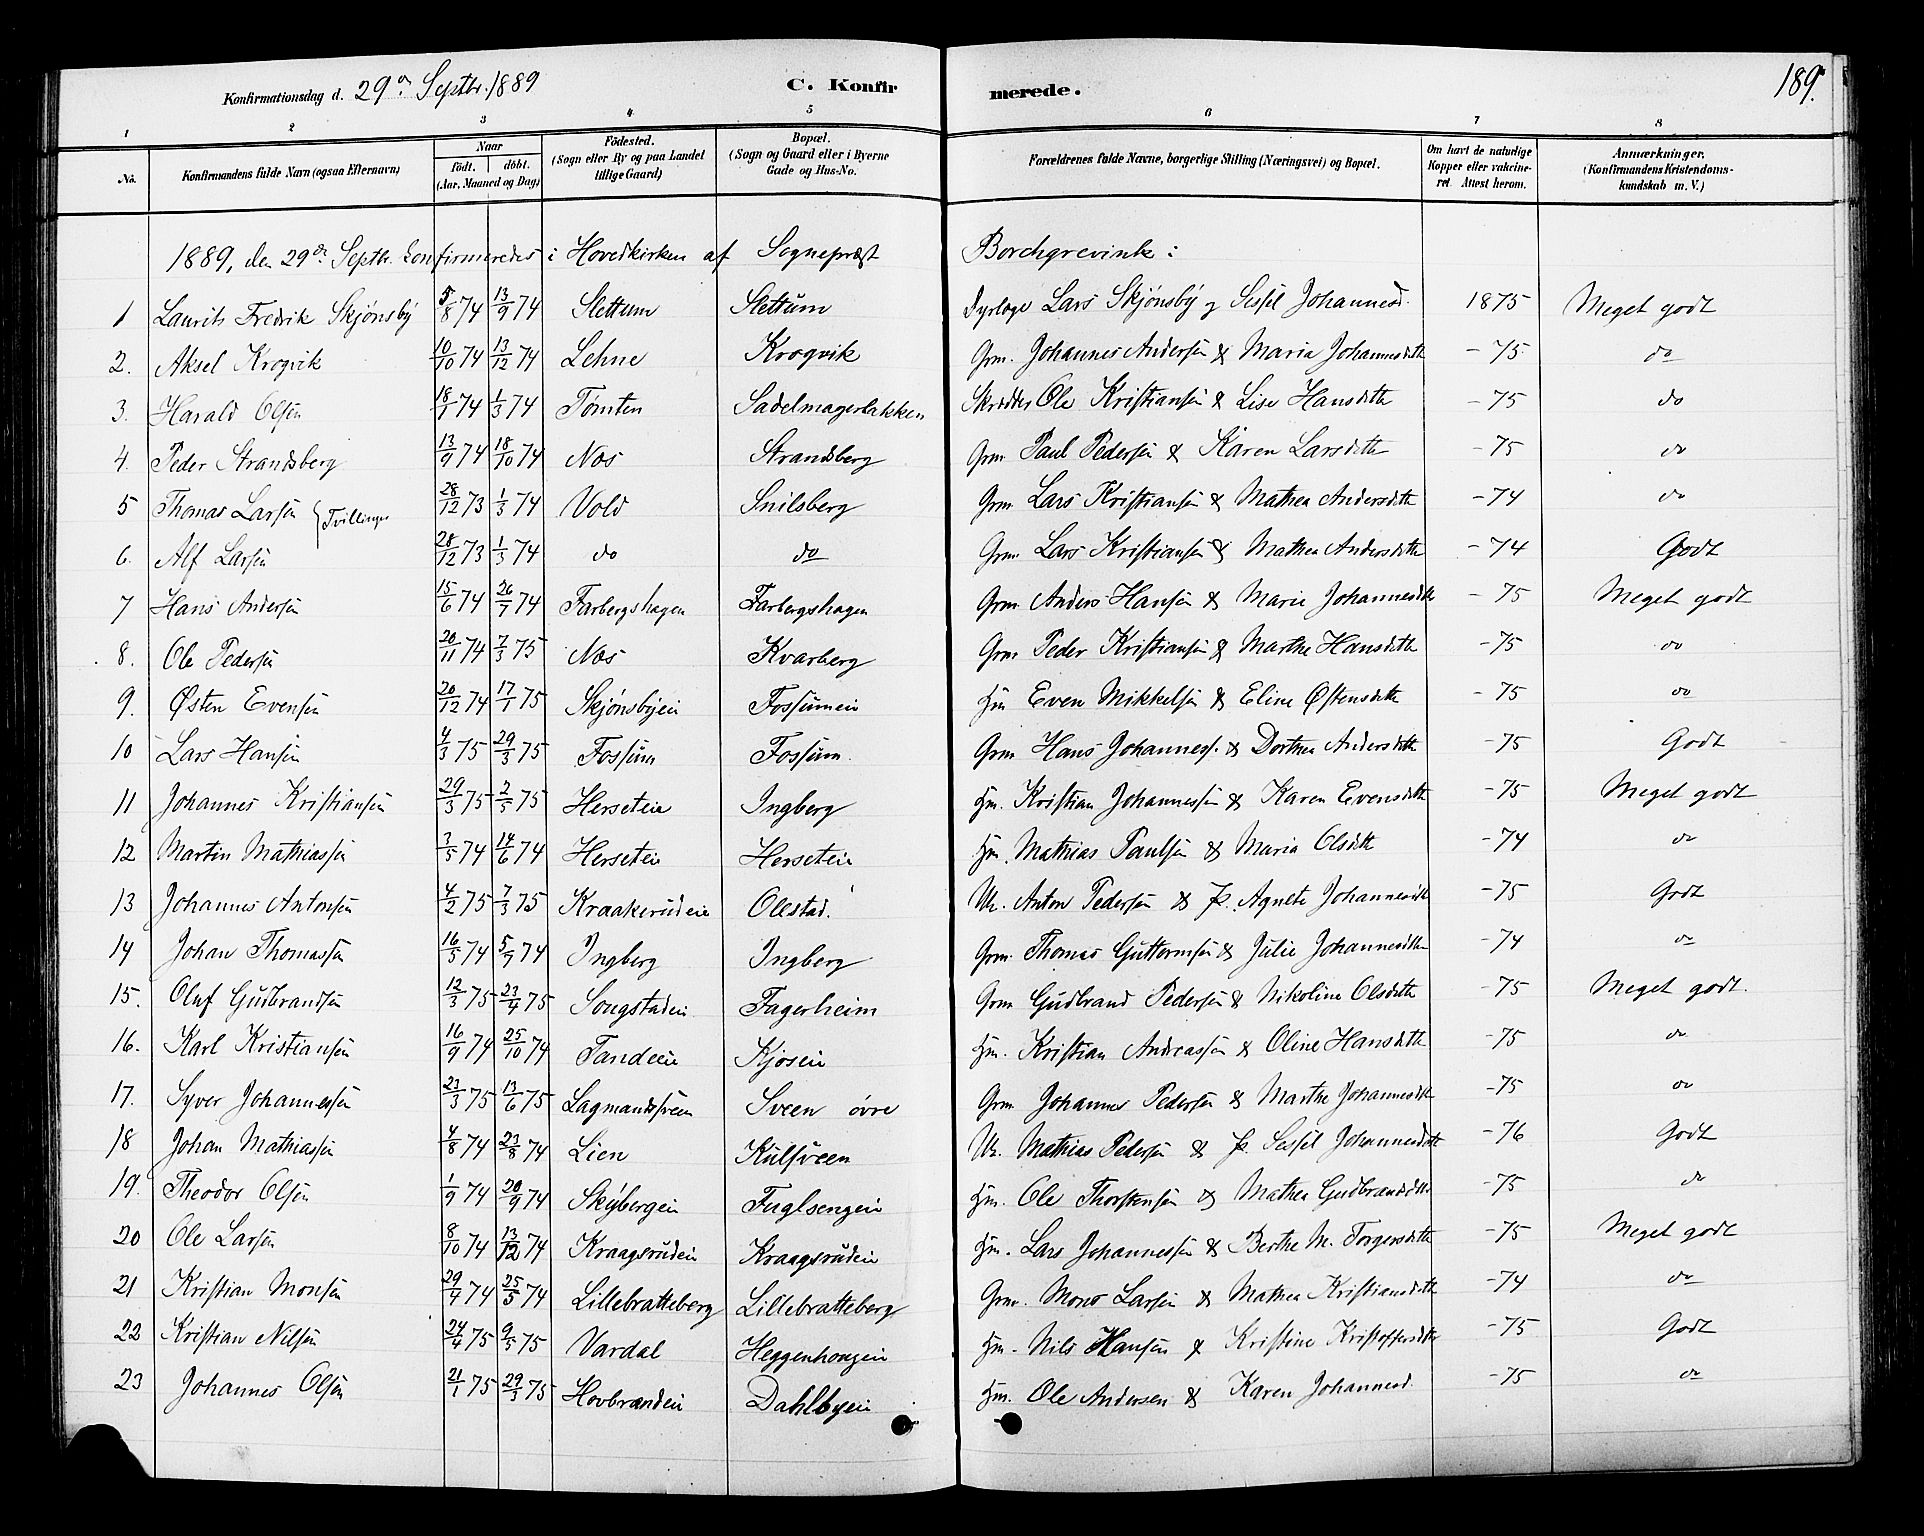 Konfirmationsdag d. 29de Septbr. 1889 C. Konfirmerede. 189.
1 2 3 4 5 6 7 8
No. Konfirmandens fulde Navn (ogsaa Efternavn) Naar födt. döbt. (Aar, Maaned og Dag) Födested. (Sogn eller By og paa Landet tillige Gaard) Bopæl. (Sogn og Gaard eller i Byerne Gade og Hus-No. Forældrenes fulde Navne, borgerlige Stilling (Næringsvei) og Bopæl. Om havt de naturlige Kopper eller vakcineret. Attest herom. Anmærkninger. (Konfirmandens Kristendomskundskab m. V.)
1889, den 29de Septbr. konfirmeredes i Hovedkirken af Sognepræst Borchgrevink:
1 Laurits Fredrik Skjönsby 5/8 74 13/9 74 Slettum Slettum Dyrlæge Lars Skjönsby og Sissil Johannesd. 1875 Meget godt
2. Aksel Krogvik 10/10 74 13/12 74 Lehne Krogvik Grm. Johannes Andersen & Maria Johannesdtr - 75 do
3. Harald Olsen 18/1 74 1/3 74 Tömten Sadelmagerbakken Skrædder Ole Kristiansen & Lise Hansdtr - 75 do
4. Peder Strandsberg 13/9 74 18/10 74 Næs Strandsberg Grm Paul Pedersen & Karen Larsdtr - 75 do
5 Thomas Larsen } Tvillinger 28/12 73 1/3 74 Vold Snilsberg Grm Lars Kristiansen & Mathea Andersdtr - 74 do
6. Alf Larsen 28/12 73 1/3 74 do do Grm. Lars Kristiansen & Mathea Andersdtr - 74 Godt
7 Hans Andersen 15/6 74 26/7 74 Farbergshagen Farbergshagen Grm. Anders Hansen & Marie Johannesdtr - 75 Meget godt
8. Ole Pedersen 20/11 74 7/3 75 Næs Kvarberg Grm Peder Kristiansen & Marthe Hansdtr - 75 do
9. Østen Evensen 20/12 74 17/1 75 Skjönsbyeie Fossumeie Hm Even Mikkelsen & Eline Østensdtr - 75 do
10 Lars Hansen 4/3 75 29/3 75 Fossum Fossum Grm Hans Johanness. & Dorthea Andersdtr - 75 Godt
11 Johannes Kristiansen 29/3 75 2/5 75 Herseteie Ingberg Hm. Kristian Johannessen & Karen Evensdtr - 75 Meget godt
12 Martin Mathiassen 3/5 74 14/6 74 Herseteie Herseteie Hm. Mathias Paulsen & Maria Olsdtr - 74 do
13 Johannes Antonsen 4/2 75 7/3 75 Kraakerudeie Olestad. Uk. Anton Pedersen & P. Agnete Johannesdtr - 75 Godt
14 Johan Thomassen 16/5 74 5/7 74 Ingberg Ingberg Grm. Thomas Guttormsen & Julie Johannesdtr - 74 do
15. Oluf Gudbrandsen 12/3 75 23/4 75 Songstadeie Fagerheim Grm Gudbrand Pedersen & Nikoline Olsdtr - 75 Meget godt.
16. Karl Kristiansen 16/9 74 25/10 74 Tandeeie Kjoseie Hm. Kristian Andreassen & Oline Hansdtr - 75 do
17. Syver Johannessen 23/3 75 13/6 75 Lagmandssveen Sveen övre Grm Johannes Pedersen & Marthe Johannesdtr - 75 do
18 Johan Mathiassen 4/8 74 23/8 74 Lien Kulsveen Uk. Mathias Pedersen & P. Sissil Johannesdtr - 76 Godt
19. Theodor Olsen 1/9 74 20/9 74 Skybergeie Fuglsengeie Hm. Ole Thorstensen & Mathea Gudbrandsdtr - 75 do
20 Ole Larsen 8/10 74 13/12 74 Kraagsrudeie Kraagsrudeie Hm. Lars Johannessen & Berthe M. Torgersdtr - 75 Meget godt
21 Kristian Monsen 29/4 74 25/5 74 Lillebratteberg Lillebratteberg Grm. Mons Larsen & Mathea Kristiansdtr - 74 do
22 Kristian Nilsen 24/4 75 9/5 75 Vardal Heggenhougeie Hm. Nils Hansen & Kristine Kristoffersdtr - 75 Godt
23 Johannes Olsen 21/1 75 29/3 75 Hovbrændeie Dahlbyeie Hm. Ole Andersen & Karen Johannesd. - 75 do